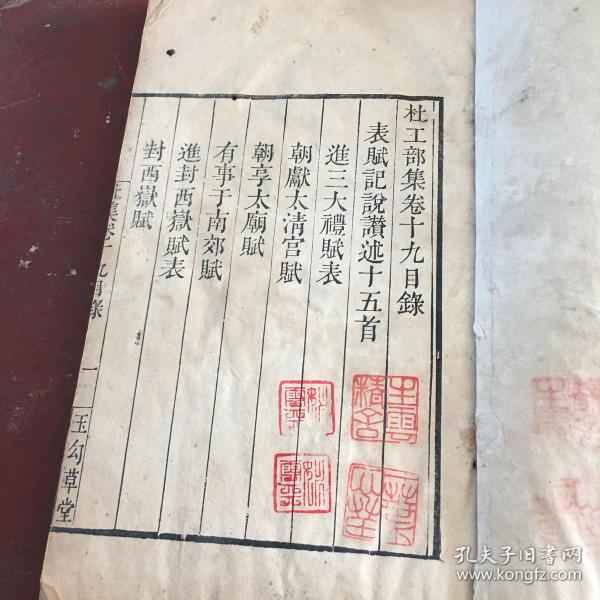 杜工部集卷十九目錄
表賦記說讚述十五首
進三大禮賦表
朝獻太清宮賦
朝享太廟賦
有事于南郊賦
進封西嶽賦表
封西嶽賦
杜集卷十九目錄
一
玉勾草堂
孔夫子旧书网
www.kongfz.com